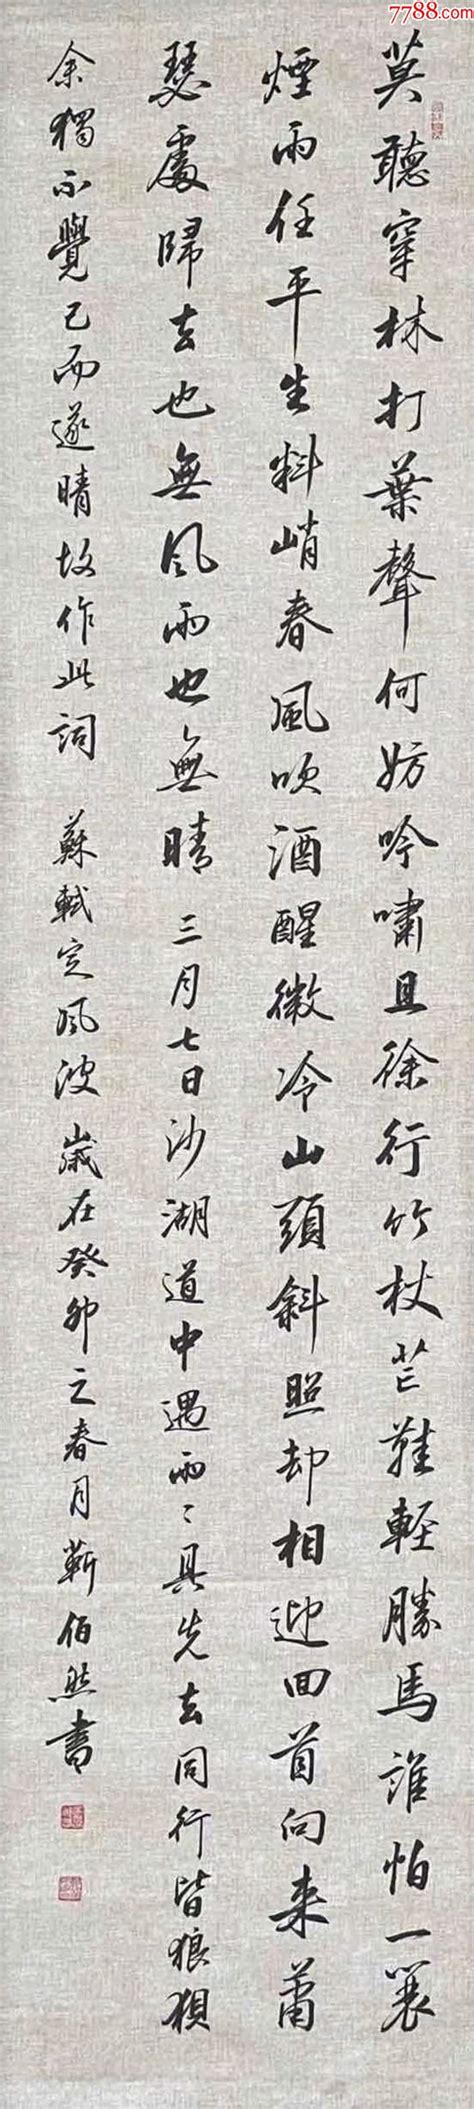 7788.com
莫聽穿林打葉聲何妨吟嘯且徐行竹杖芒鞋輕勝馬誰怕一蓑
煙雨任平生料峭春風吹酒醒微冷山頭斜照却相迎回首向来蕭
瑟處歸去也無風雨也無晴 三月七日沙湖道中遇雨々具先去同行皆狼狽
余獨不覺已而遂晴故作此詞 蘇軾定風波 歲在癸卯之春月靳伯然書